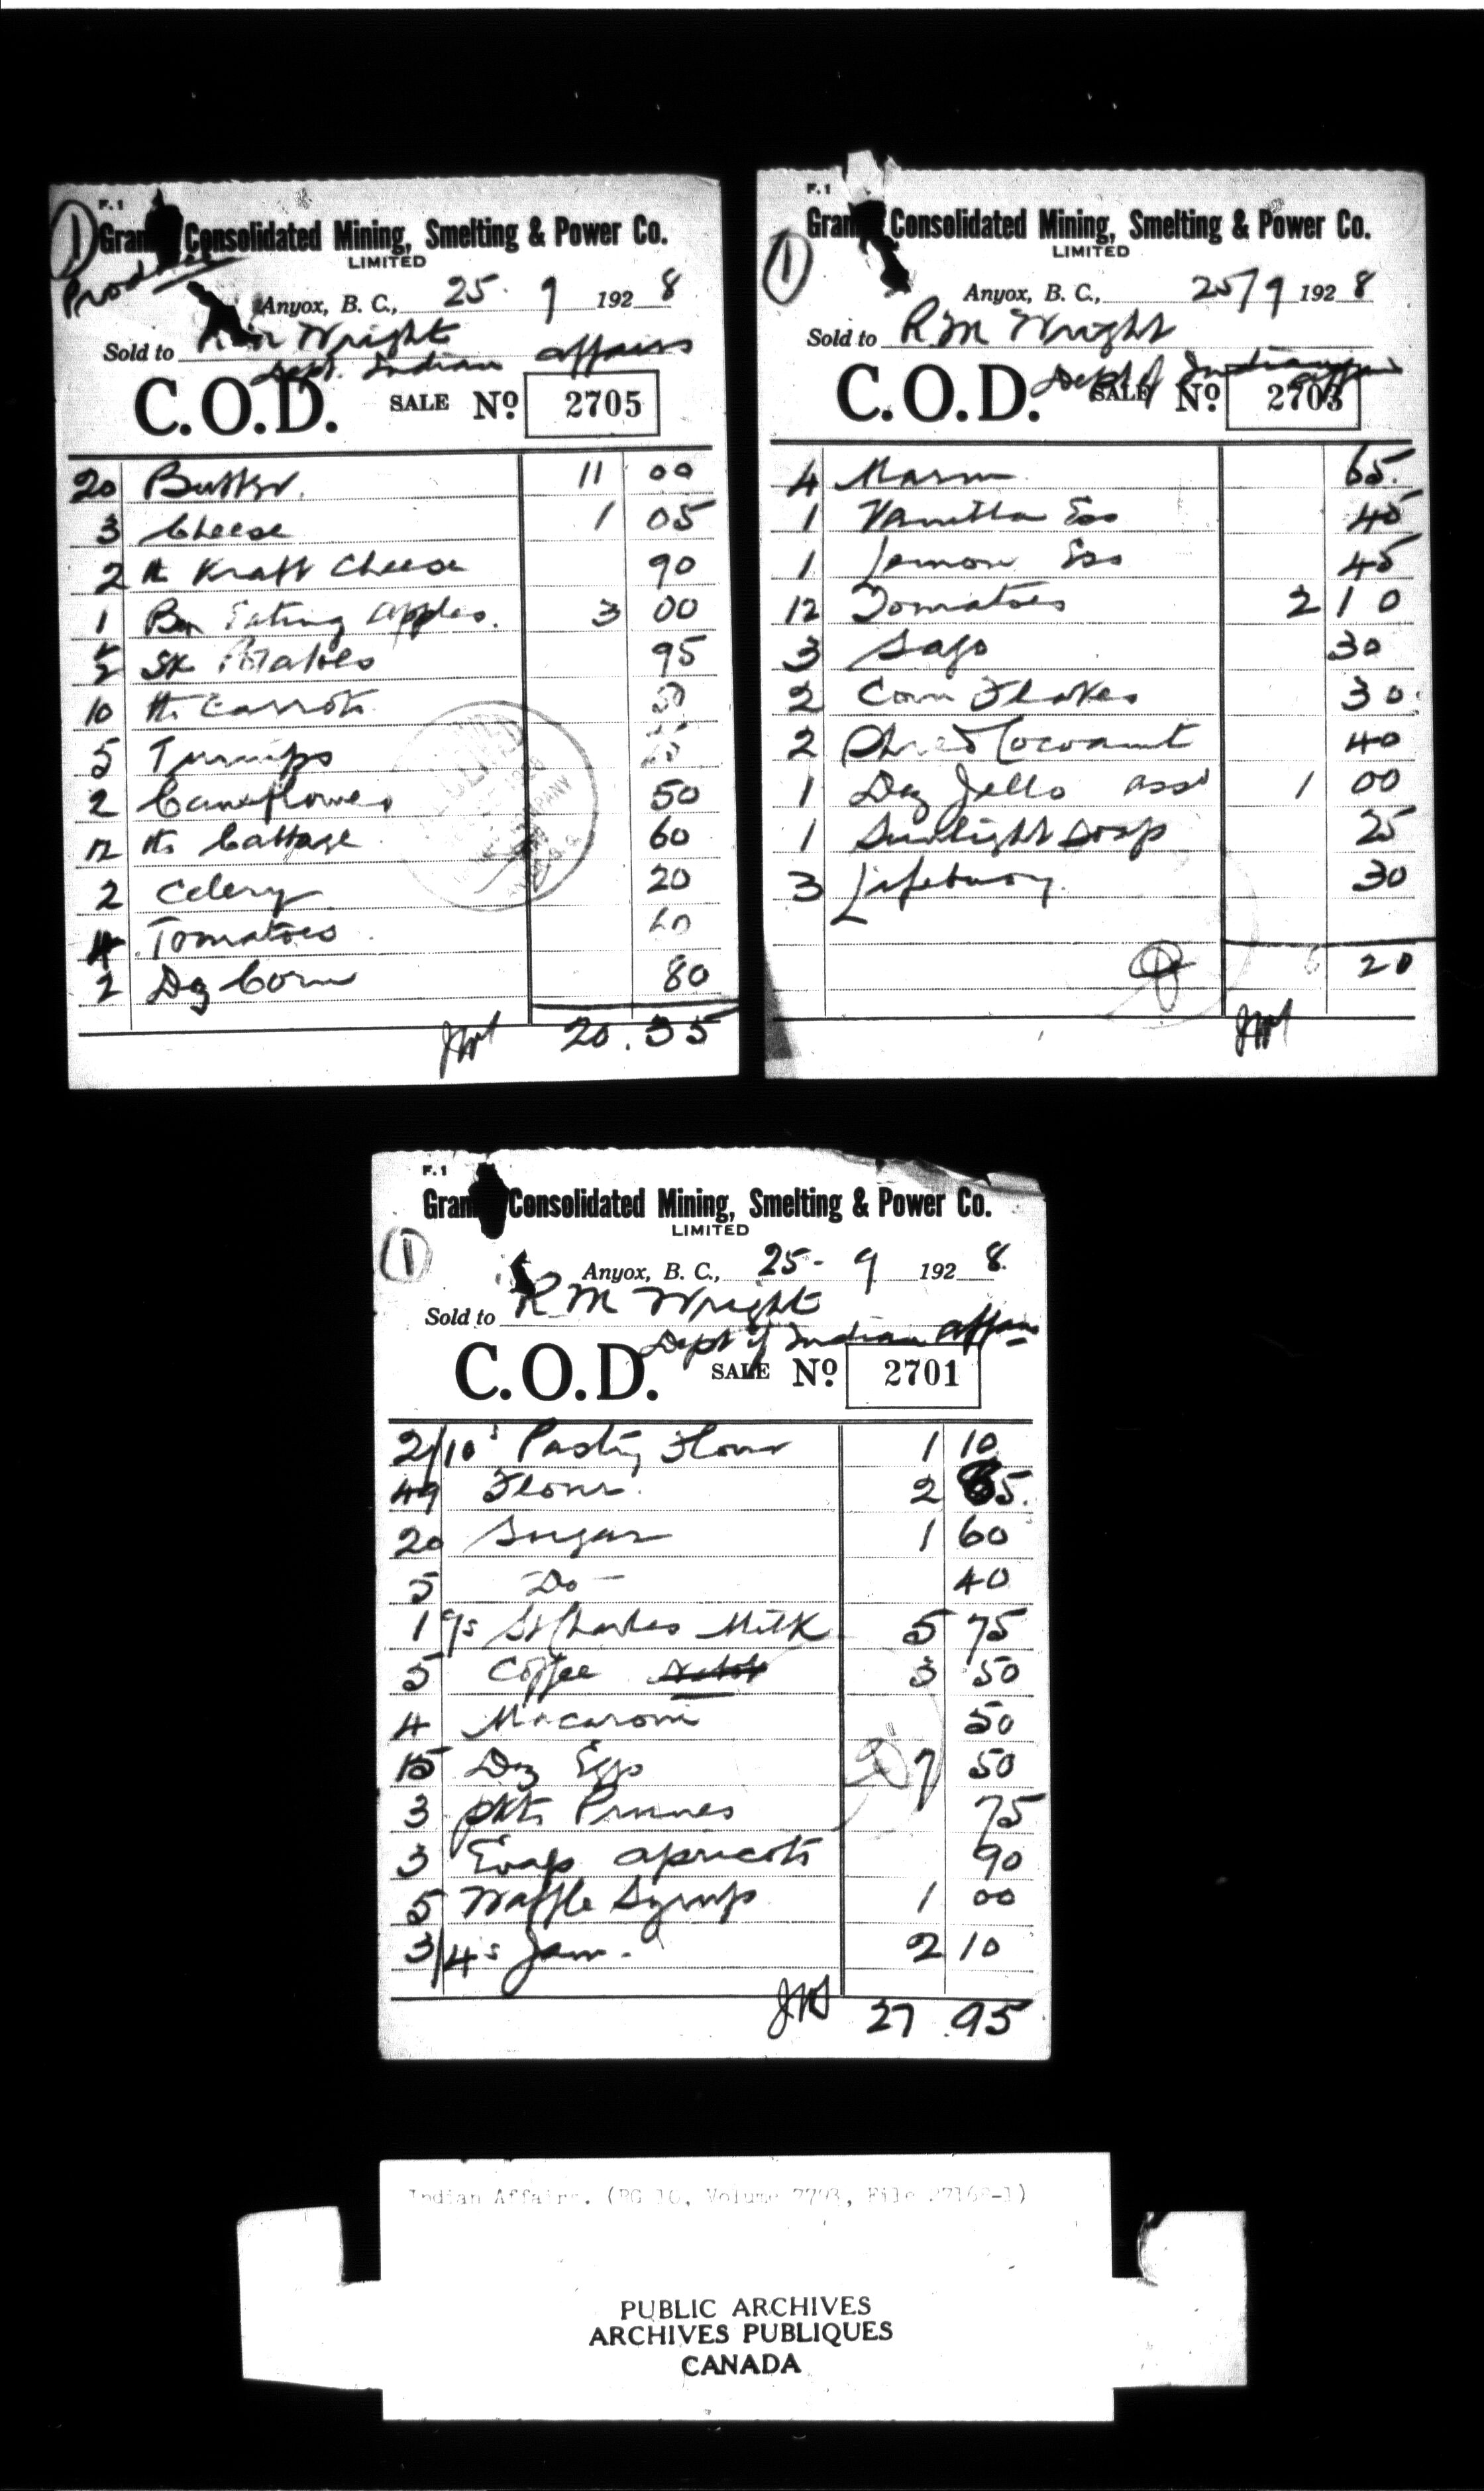 F.1
(1) Gran Consolidated Mining, Smelting & Power Co.
LIMITED
Produce
Anyox, B. C., 25. 9 1928
Sold to Wright
Dept. Indian affairs
C.O.D. SALE No. 2705
20 Butter. 11 00
3 Cheese 1 05
2 lb Kraft Cheese 90
1 Box Eating Apples. 3 00
½ SK Potatoes 95
10 lbs Carrots 50
5 Turnips
2 Cauliflower 50
12 lbs Cabbage 60
2 Celery 20
4 Tomatoes 60
2 Doz Corn 80
20.35
F.1
(1) Gran Consolidated Mining, Smelting & Power Co.
LIMITED
Anyox, B. C., 25/9 1928
Sold to R M Wright
Dept of Indian affairs
C.O.D. SALE No. 2703
4 65.
1 Vanilla Ess 45
1 Lemon Ess 45
12 Tomatoes 2 10
3 Sago 30
2 Corn Flakes 30
2 Shred Cocoanut 40
1 Doz Jello asst 1 00
1 Sunlight Soap 25
3 Lifebuoy. 30
6 20
F.1
(1) Gran Consolidated Mining, Smelting & Power Co.
LIMITED
Anyox, B. C., 25-9 1928.
Sold to R M Wright
Dept of Indian affairs
C.O.D. SALE No. 2701
2/10s Pastry Flour 1 10
49 Flour. 2 85.
20 Sugar 1 60
5 -Do- 40
1 9s St Charles Milk 5 75
5 Coffee 3 50
4 Macaroni 50
15 Doz Eggs 7 50
3 pkts Prunes 75
3 Evap apricots 90
5 Waffle Syrup 1 00
3/4s Jam. 2 10
27.95
Indian Affairs. (RG 10, Volume File
PUBLIC ARCHIVES
ARCHIVES PUBLIQUES
CANADA